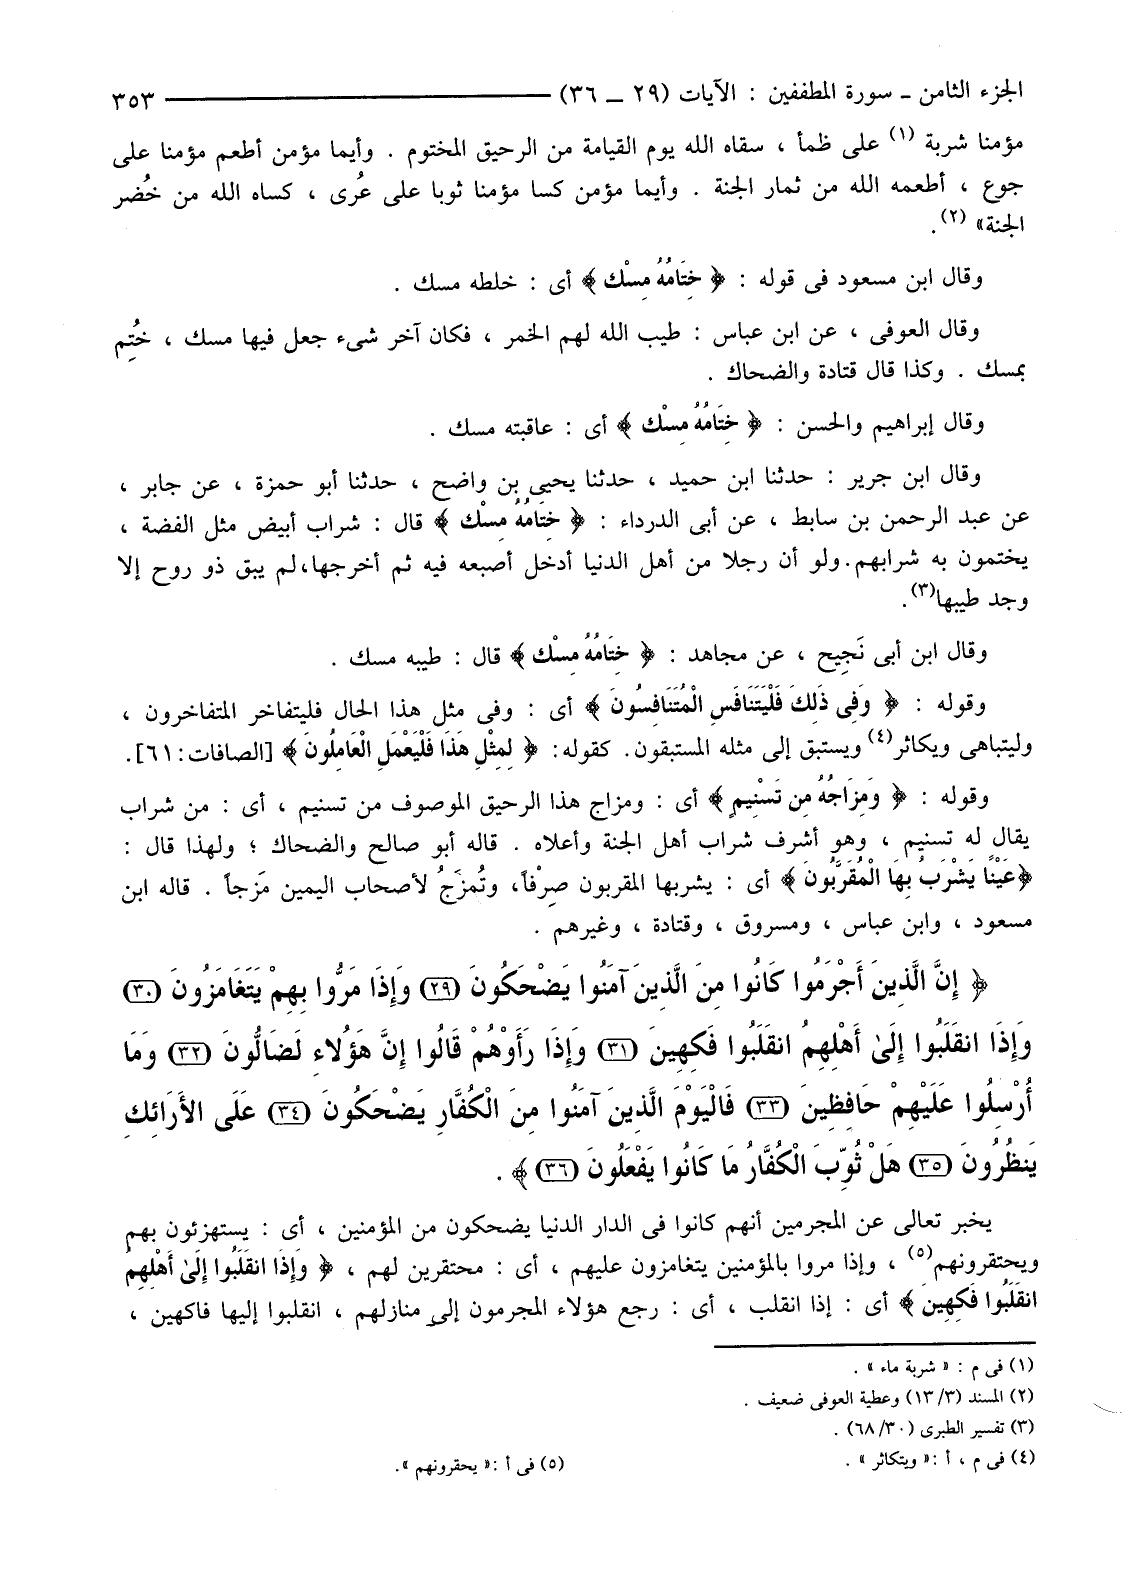 الجزء الثامن ـ سورة المطففين : الآيات (٢٩ ـ ٣٦) ٣٥٣
مؤمنا شربة (١) على ظمأ ، سقاه الله يوم القيامة من الرحيق المختوم . وأيما مؤمن أطعم مؤمنا على
جوع ، أطعمه الله من ثمار الجنة . وأيما مؤمن كسا مؤمنا ثوبا على عُرى ، كساه الله من خُضر
الجنة» (٢).
وقال ابن مسعود فى قوله : ﴿ خِتَامُهُ مِسْك ﴾ أى : خلطه مسك .
وقال العوفى ، عن ابن عباس : طيب الله لهم الخمر ، فكان آخر شىء جعل فيها مسك ، خُتِم
بمسك . وكذا قال قتادة والضحاك .
وقال إبراهيم والحسن : ﴿ خِتَامُهُ مِسْك ﴾ أى : عاقبته مسك .
وقال ابن جرير : حدثنا ابن حميد ، حدثنا يحيى بن واضح ، حدثنا أبو حمزة ، عن جابر ،
عن عبد الرحمن بن سابط ، عن أبى الدرداء : ﴿ خِتَامُهُ مِسْك ﴾ قال : شراب أبيض مثل الفضة ،
يختمون به شرابهم.ولو أن رجلا من أهل الدنيا أدخل أصبعه فيه ثم أخرجها،لم يبق ذو روح إلا
وجد طيبها(٣).
وقال ابن أبى نَجيح ، عن مجاهد : ﴿ خِتَامُهُ مِسْك ﴾ قال : طيبه مسك .
وقوله : ﴿ وَفِي ذَلِكَ فَلْيَتَنَافَسِ الْمُتَنَافِسُونَ ﴾ أى : وفى مثل هذا الحال فليتفاخر المتفاخرون ،
وليتباهى ويكاثر(٤) ويستبق إلى مثله المستبقون. كقوله: ﴿ لِمِثْلِ هَذَا فَلْيَعْمَلِ الْعَامِلُونَ ﴾ [الصافات:٦١].
وقوله : ﴿ وَمِزَاجُهُ مِن تَسْنِيمٍ ﴾ أى : ومزاج هذا الرحيق الموصوف من تسنيم ، أى : من شراب
يقال له تسنيم ، وهو أشرف شراب أهل الجنة وأعلاه . قاله أبو صالح والضحاك ؛ ولهذا قال :
﴿عَيْنًا يَشْرَبُ بِهَا الْمُقَرَّبُونَ ﴾ أى : يشربها المقربون صِرْفاً، وتُمزَجُ لأصحاب اليمين مَزجاً . قاله ابن
مسعود ، وابن عباس ، ومسروق ، وقتادة ، وغيرهم .
﴿ إِنَّ الَّذِينَ أَجْرَمُوا كَانُوا مِنَ الَّذِينَ آمَنُوا يَضْحَكُونَ (٢٩) وَإِذَا مَرُّوا بِهِمْ يَتَغَامَزُونَ (٣٠)
وَإِذَا انقَلَبُوا إِلَىٰ أَهْلِهِمُ انقَلَبُوا فَكِهِينَ (٣١) وَإِذَا رَأَوْهُمْ قَالُوا إِنَّ هَؤُلاءِ لَضَالُّونَ (٣٢) وَمَا
أُرْسِلُوا عَلَيْهِمْ حَافِظِينَ (٣٣) فَالْيَوْمَ الَّذِينَ آمَنُوا مِنَ الْكُفَّارِ يَضْحَكُونَ (٣٤) عَلَى الأَرَائِكِ
يَنظُرُونَ (٣٥) هَلْ ثُوِّبَ الْكُفَّارُ مَا كَانُوا يَفْعَلُونَ (٣٦) ﴾ .
يخبر تعالى عن المجرمين أنهم كانوا فى الدار الدنيا يضحكون من المؤمنين ، أى : يستهزئون بهم
ويحتقرونهم(٥) ، وإذا مروا بالمؤمنين يتغامزون عليهم ، أى : محتقرين لهم ، ﴿ وَإِذَا انقَلَبُوا إِلَىٰ أَهْلِهِمُ
انقَلَبُوا فَكِهِينَ ﴾ أى : إذا انقلب ، أى : رجع هؤلاء المجرمون إلى منازلهم ، انقلبوا إليها فاكهين ،
(١) فى م : « شربة ماء » .
(٢) المسند (١٣/٣) وعطية العوفى ضعيف .
(٣) تفسير الطبرى (٦٨/٣٠) .
(٤) فى م ، أ :« ويتكاثر » .
(٥) فى أ :« يحقرونهم ».